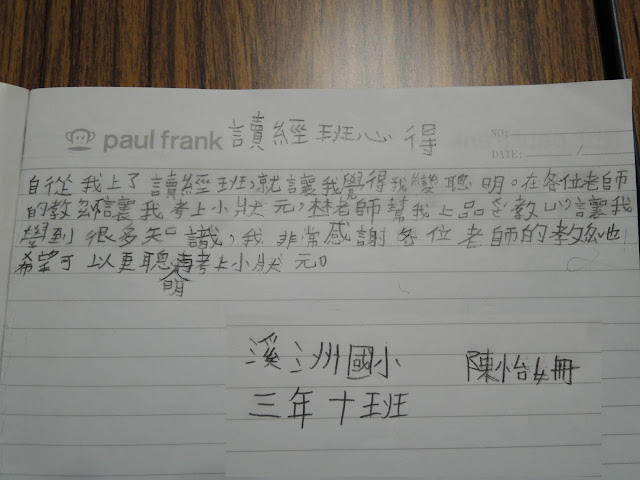 paul frank 讀經班心得 NO:
DATE:
自從我上了讀經班,就讓我覺得我變聰明。在各位老師
的教導讓我考上小狀元,林老師幫我上品德教心讓我
學到很多知識,我非常感謝各位老師的教導也
希望可以更聰明再考上小狀元。
溪洲國小 陳怡姍
三年十班